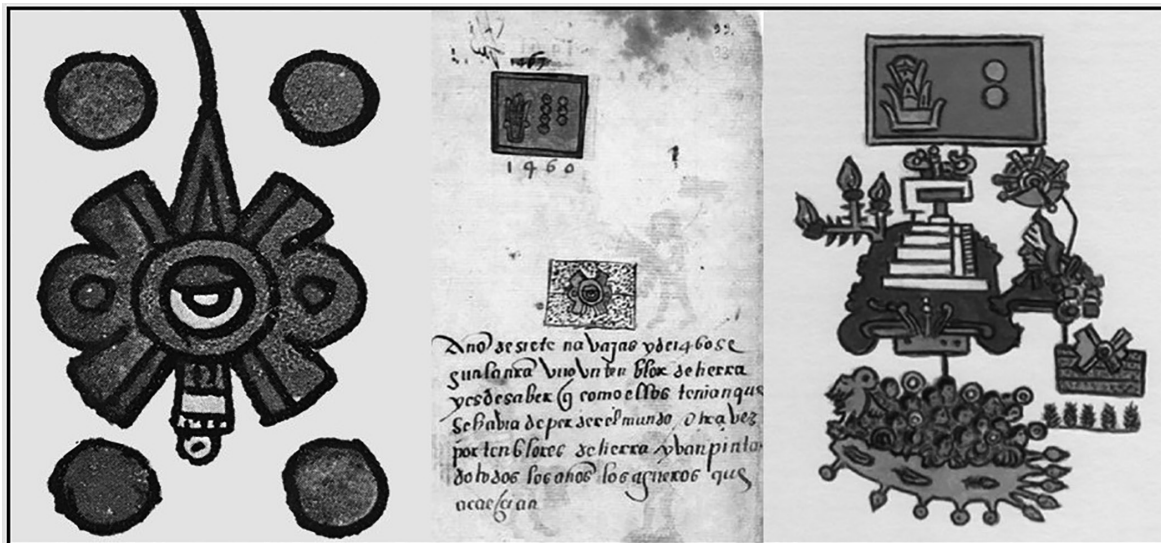 99.
1460
Año de siete navajas y de 1460 se
gun la nra vuo vn ten blor de tierra
y es de saber q como ellos tenian que
se habia de perder el mundo otra vez
por tenblores de tierra yban pinta
do todos los años los agueros que
acaescian